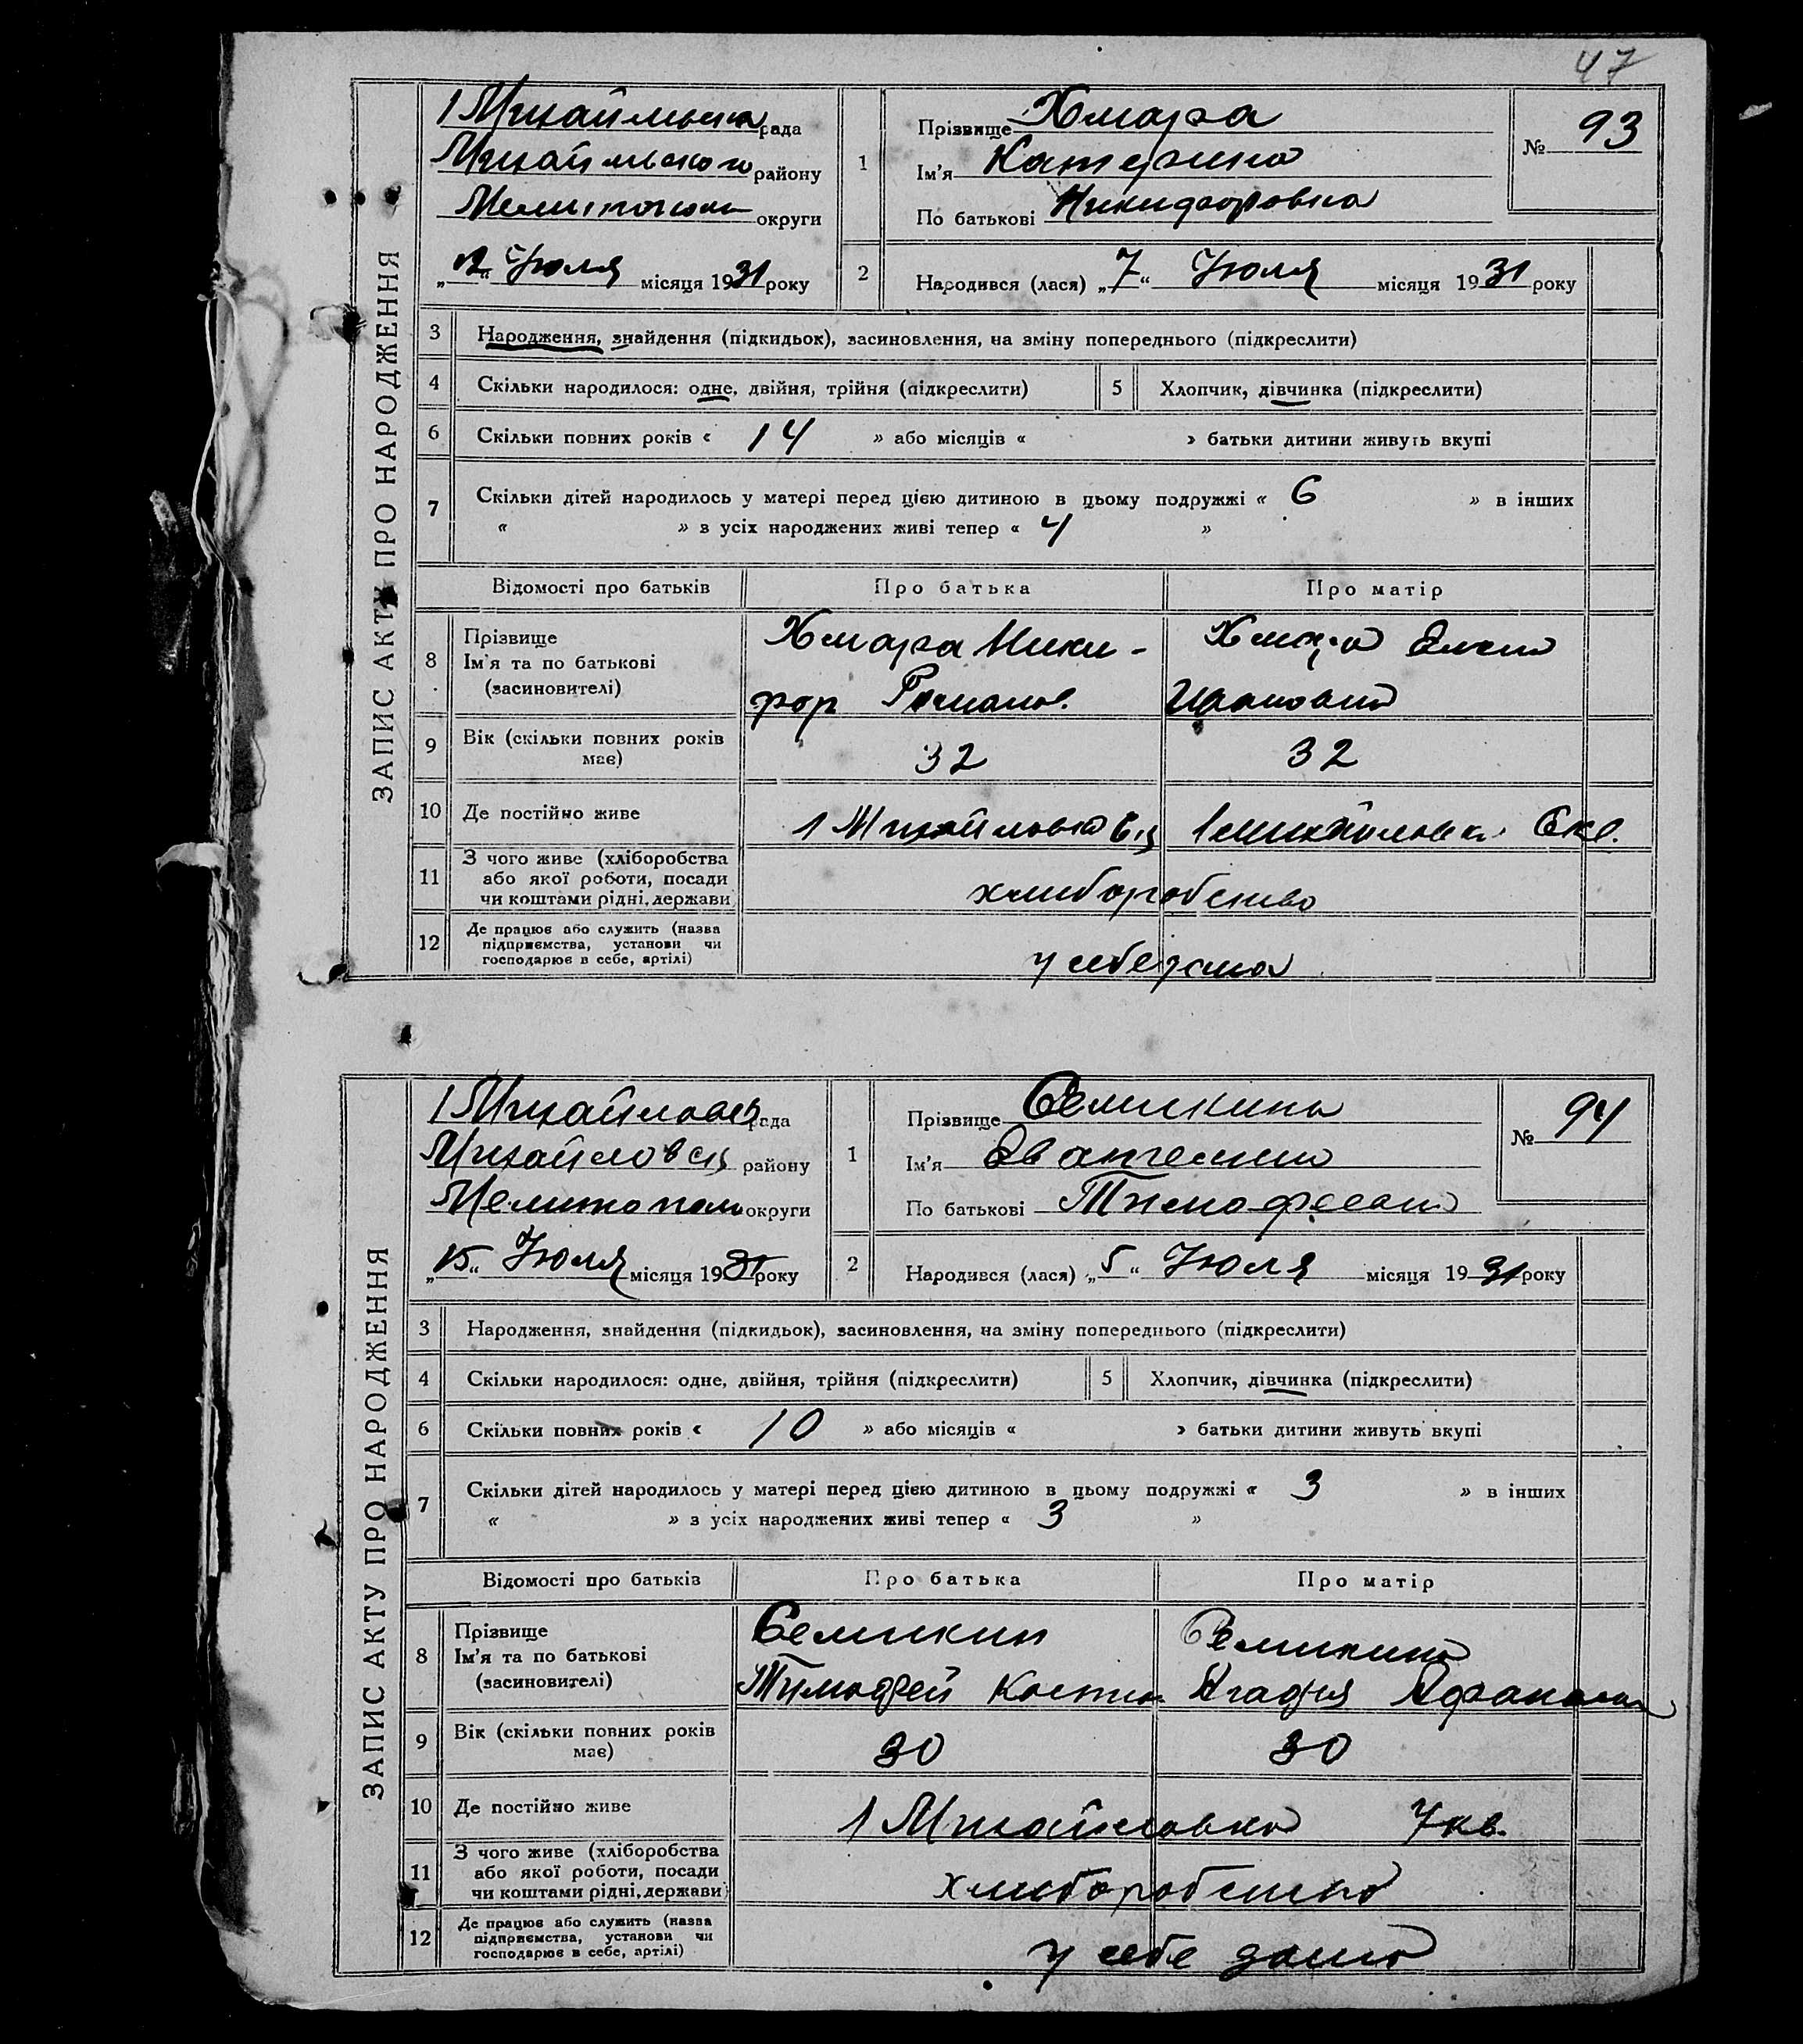 47
ЗАПИС АКТУ ПРО НАРОДЖЕННЯ
рада
району
округи
" " Июля місяця 1931 року
1 Прізвище Хмара
Ім'я Катерина
По батькові Никифоровна
№ 93
2 Народився (лася) „7“ Июля місяця 1931 року
3 Народження, знайдення (підкидьок), засиновлення, на зміну попереднього (підкреслити)
4 Скільки народилося: одне, двійня, трійня (підкреслити) 5 Хлопчик, дівчинка (підкреслити)
6 Скільки повних років « 14 » або місяців « » батьки дитини живуть вкупі
7 Скільки дітей народилось у матері перед цією дитиною в цьому подружжі « 6 » в інших
« » з усіх народжених живі тепер « 4 »
Відомості про батьків Про батька Про матір
8 Прізвище
Ім'я та по батькові
(засиновителі)
Хмара Ники-
фор Романов.
Хмара
9 Вік (скільки повних років має) 32 32
10 Де постійно живе 1 Михайловка 1 Михайловка 6 кв.
11 З чого живе (хліборобства
або якої роботи, посади
чи коштами рідні, держави
хлиборобство
12 Де працює або служить (назва
підприємства, установи чи
господарює в себе, артілі)
у себе
ЗАПИС АКТУ ПРО НАРОДЖЕННЯ
1 рада
району
округи
„15“ Июля місяця 1931 року
1 Прізвище Семикина
Ім'я Евангелина
По батькові
№ 94
2 Народився (лася) „5“ Июля місяця 1931 року
3 Народження, знайдення (підкидьок), засиновлення, на зміну попереднього (підкреслити)
4 Скільки народилося: одне, двійня, трійня (підкреслити) 5 Хлопчик, дівчинка (підкреслити)
6 Скільки повних років « 10 » або місяців « » батьки дитини живуть вкупі
7 Скільки дітей народилось у матері перед цією дитиною в цьому подружжі « 3 » в інших
« » з усіх народжених живі тепер « 3 »
Відомості про батьків Про батька Про матір
8 Прізвище
Ім'я та по батькові
(засиновителі)
Семикин
Тимофей
Семикина
Агафия
9 Вік (скільки повних років має) 30 30
10 Де постійно живе 1 Михайловка 7 кв.
11 З чого живе (хліборобства
або якої роботи, посади
чи коштами рідні, держави
хлиборобство
12 Де працює або служить (назва
підприємства, установи чи
господарює в себе, артілі)
у себе дома